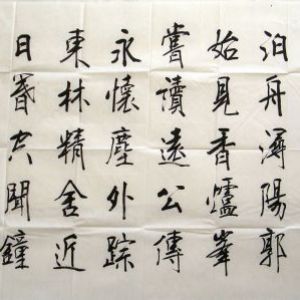 泊舟潯陽郭
始見香爐峯
嘗讀遠公傳
永懷塵外踪
東林精舍近
日暮空聞鐘